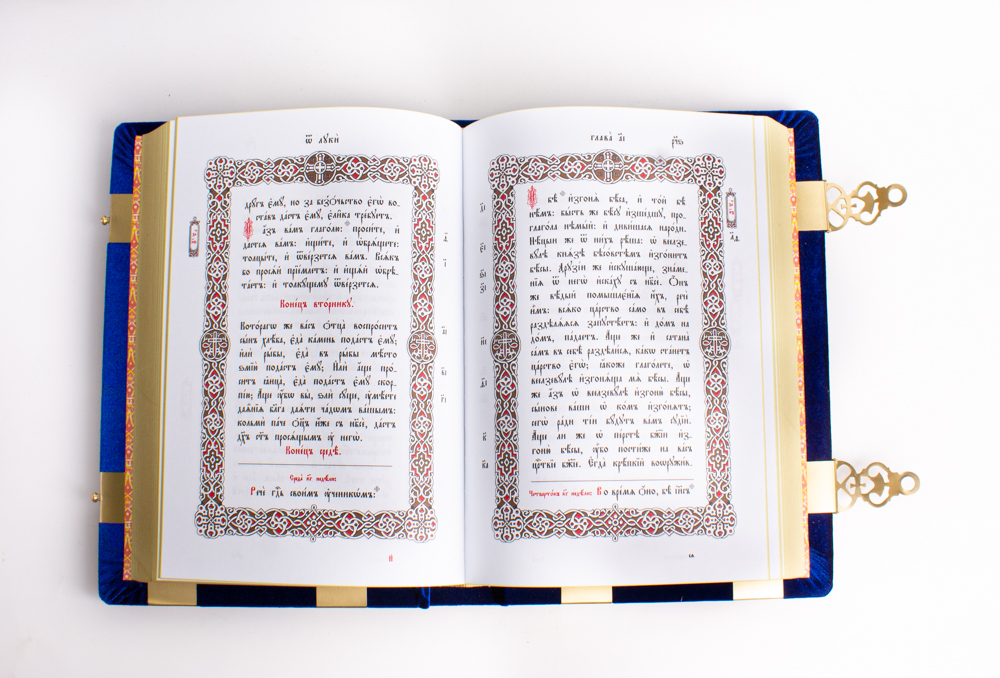 Ѿ ЛУКИ́
другъ є҆мꙋ̀, но за безо́чьство є҆гѡ̀ во-
ста́въ да́стъ є҆мꙋ̀, є҆ли́ка тре́бꙋетъ.
а҆́зъ ва́мъ глаго́лю: проси́те, и҆
да́стсѧ ва́мъ: и҆щи́те, и҆ ѡ҆брѧ́щете:
толцы́те, и҆ ѿве́рзетсѧ ва́мъ. Всѧ́къ
бо просѧ́й прїе́млетъ: и҆ и҆щѧ́й ѡ҆брѣ-
та́етъ: и҆ толкꙋ́щемꙋ ѿве́рзетсѧ.
Коне́цъ вто́рникꙋ.
Кото́рагѡ же ва́съ ѻ҆тца̀ воспро́ситъ
сы́нъ хлѣ́ба, є҆да̀ ка́мень пода́стъ є҆мꙋ̀;
и҆лѝ ры́бы, є҆да̀ въ ры́бы мѣ́сто
ѕмїю̀ пода́стъ є҆мꙋ̀; И҆лѝ а҆́ще про́-
ситъ ꙗ҆ица̀, є҆да̀ пода́стъ є҆мꙋ̀ скор-
пі́ю; А҆́ще ᲂу҆́бѡ вы̀, ѕлѝ сꙋ́ще, ᲂу҆мѣ́ете
даѧ̑нїѧ бл҃га даѧ́ти ча́дѡмъ ва́шымъ:
кольмѝ па́че ѻ҆ц҃ъ, и҆́же съ нб҃сѐ, да́стъ
дх҃а ст҃а́го просѧ́щымъ ᲂу҆ негѡ̀.
Коне́цъ средѣ̀.
Речѐ гдⷭ҇ь свои̑мъ ᲂу҆ченикѡ́мъ:
и҃
ГЛАВА̀ а҃і
бѣ̀ и҆згонѧ̀ бѣ́са, и҆ то́й бѣ̀
нѣ́мъ: бы́сть же бѣ́сꙋ и҆зше́дшꙋ, про-
глаго́ла нѣмы́й: и҆ диви́шасѧ наро́ди.
Нѣ́цыи же ѿ ни́хъ рѣ́ша: ѡ҆ веельзе-
вꙋ́лѣ кнѧ́зѣ бѣсо́встѣмъ и҆зго́нитъ
бѣ́сы. Дрꙋзі́и же и҆скꙋша́юще, зна́ме-
нїѧ ѿ негѡ̀ и҆ска́хꙋ съ нб҃сѐ. Ѻ҆́нъ
же вѣ́дый помышлє́нїѧ и҆́хъ, речѐ
и҆̀мъ: всѧ́ко ца́рство само̀ въ себѣ̀
раздѣлѧ́ѧсѧ запꙋстѣ́етъ: и҆ до́мъ на
до́мъ, па́даетъ. А҆́ще же и҆ сатана̀
са́мъ въ себѣ̀ раздѣли́сѧ, ка́кѡ ста́нетъ
ца́рство є҆гѡ̀; ꙗ҆́коже глаго́лете, ѡ҆
веельзевꙋ́лѣ и҆згонѧ́ща мѧ̀ бѣ́сы. А҆́ще
же а҆́зъ ѡ҆ веельзевꙋ́лѣ и҆згоню̀ бѣ́сы,
сы́нове ва́ши ѡ҆ ко́мъ и҆зго́нѧтъ;
сегѡ̀ ра́ди ті́и бꙋ́дꙋтъ ва́мъ сꙋдїи̑.
А҆́ще ли же ѡ҆ пе́рстѣ бж҃їи и҆з-
гоню̀ бѣ́сы, ᲂу҆̀бо пости́же на ва́съ
црⷭ҇твїе бж҃їе. Є҆гда̀ крѣ́пкїй воѡрꙋжи́всѧ
Во вре́мѧ ѻ҆́но, бѣ̀ і҆и҃съ